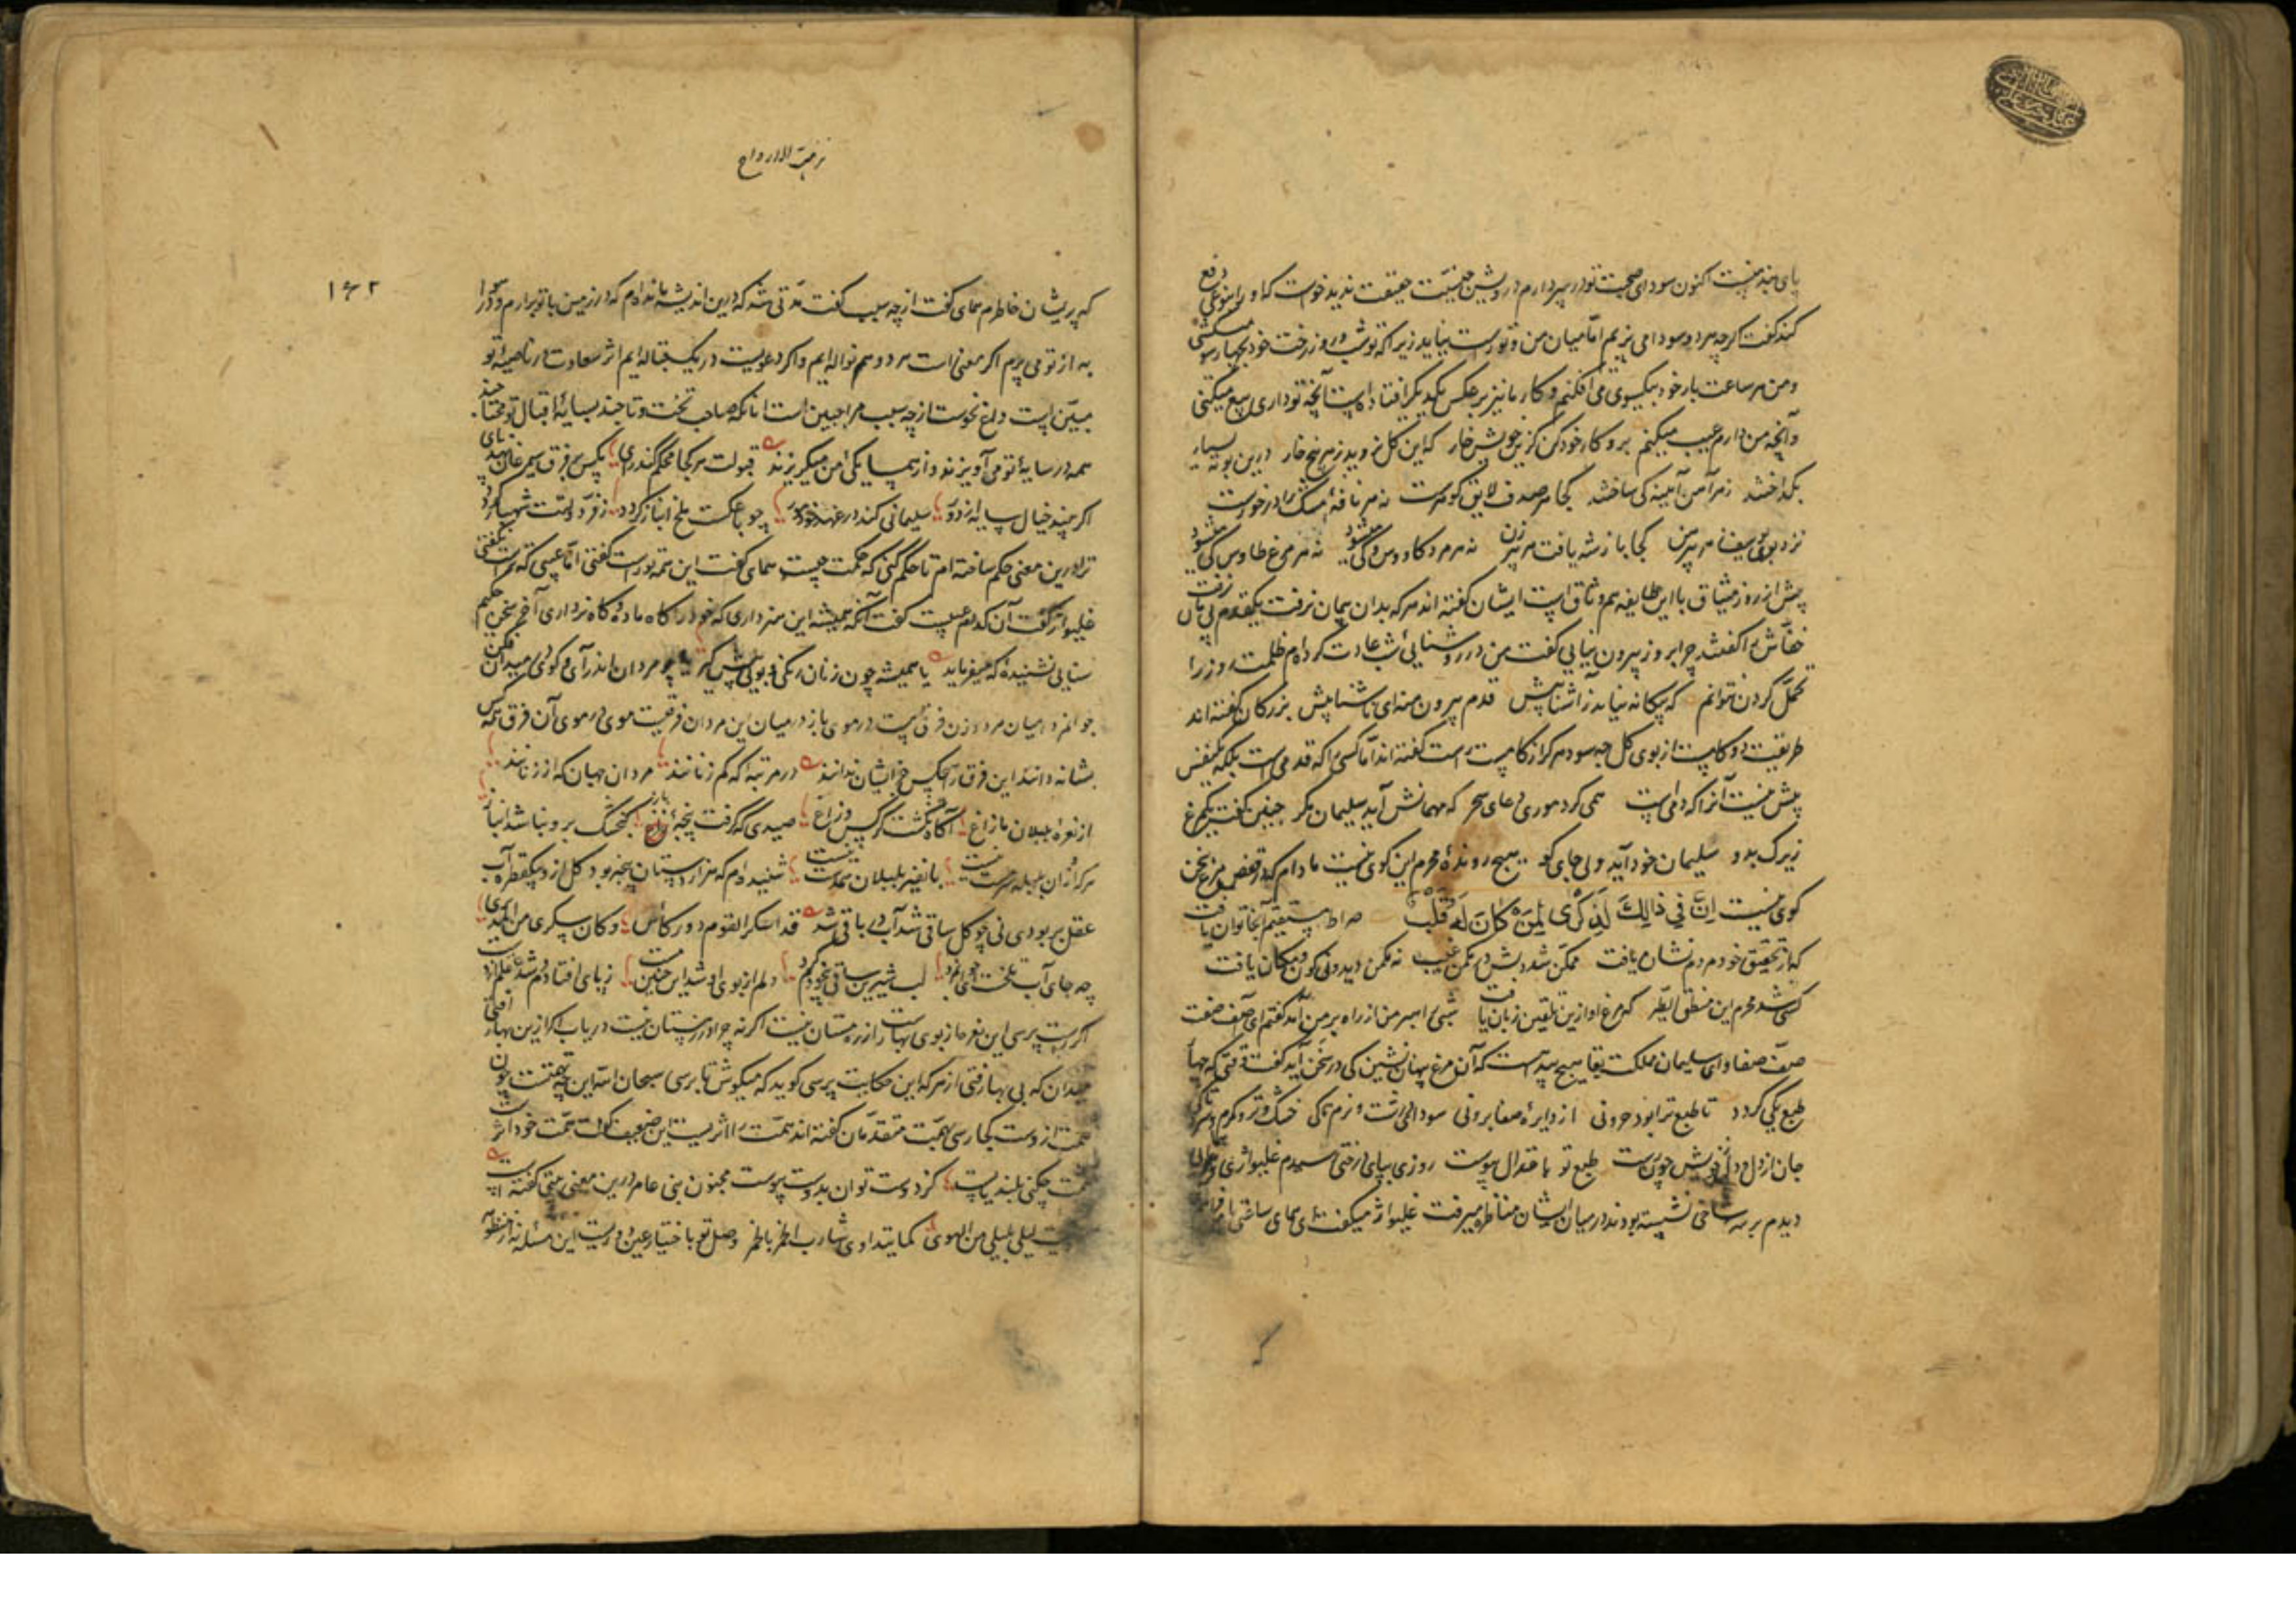 پای بند نیست اکنون سودای صحبت تو در سر دارم درویش چون نیت حقیقت ندید خواست که او را بنوعی دفع
کند گفت اگرچه هر دو سودا می پزیم اما میان من و تو راست نیاید زیرا که تو شب و روز رخت خود بچهارسو میکشی
و من هر ساعت بار خود بیکسوی می افکنم و کار ما نیز بر عکس یکدیگر افتاده است آنچه تو داری بیع میکنی
و آنچه من دارم عیب میکنم برو کار خود کن گزین خویش خار که این گل نروید ز هر بیخ خار درین بوته بسیار
بگداختند ز هر آهن آیینه کی ساختند کجا هر صدف لایق گوهرست نه هر نافه مشک در خورست
نزد بوی یوسف ز هر پیرهن کجا باز شه یافت هر پیرزن نه هر مرد کاووس کی میشود نه هر مرغ طاوس کی میشود
پیش از روز میثاق با این طایفه هم وثاق است ایشان گفته اند هر که بدان پیمان نرفت یکقدم پی آن نرفت
خفاش را گفتند چرا بروز بیرون نیایی گفت من در روشنایی شب عادت کرده ام ظلمت روز را
تحمل کردن نتوانم که بیگانه نیاید ز آشنا پیش قدم بیرون منه ای آشنا پیش بزرگان گفته اند
طریقت دو گامست از بوی گل چه سود مرکرا زکامست راست گفته اند اما کسی را که قدمی است بلکه یکنفس
پیش نیست آنرا که دمی است همی کرد موری دعای سحر که مهمانش آید سلیمان مگر چنین گفت یکمرغ
زیرک بدو سلیمان خود آید ولی جای کو هیچ رونده محرم این کوی نیست مادام که در قفص مرغ سخن
گوی نیست اِنَّ فِی ذالِکَ لَذِکْرٰی لِمَنْ کَانَ لَهُ قَلْبٌ صراط مستقیم آنجا توان یافت
که از تحقیق خود مردم نشان یافت ممکن شد دبش در مکن غیب نه مکن دید ونی کون و مکان یافت
کسی شد محرم این منطق الطیر که مرغ او ازین تلقین زبان یافت شبی امیر من از راه بر من آمد گفتم ای آصف صفت
صف صفا و ای سلیمان مملکت بقا هیچ پیداست که آن مرغ پنهان نشین کی در سخن آید گفت وقتی که چهار
طبع یکی گردد تا طبع ترا بود حرونی از دایره صفا برونی سودای درشت و نرم تا کی خشک و تر و گرم و سرد تا کی
جان از دل و دل ز خویش چون رست طبع تو باعتدال پیوست روزی بپای درختی رسیدم غلیواژی و همای
دیدم بر سر شاخی نشسته بودند در میان ایشان مناظره میرفت غلیواژ میگفت ای همای ساعتی با
که
نزهت الارواح
۱۶۲
که پریشان خاطرم همای گفت از چه سبب گفت مدتی شد که درین اندیشه مانده ام که در زمین با تو برارم و چرا
به از تو می پرم اگر معنی است هر دو هم نواله ایم و اگر دعویست در یک قباله ایم اثر سعادت در ناصیه تو
مبین است داغ نحوست از چه سبب مرا جبین است تا نکه صاحب تخت و تا چند بسایه اقبال تو محتاج
همه در سایه تو می آویزند و از همسایگی من میگریزند قبولت هر کجا محکم کند رای کس بر فرق سیمرغان نهد پای
اگر بیند خیال سایه از دور سلیمانی کند در عهد خود مور چو با عکست ملخ انباز گردد ز فر دولتت شهباز گردد
ترا درین معنی حکم ساخته ام تا حکم کنی که حکمت چیست همای گفت این همه تو راست گفتی اما عیبی که تراست نگفتی
غلیواژ گفت آن کدام عیبست گفت آنکه همیشه این هنر داری که خود را گاه ماده و گاه نر داری آخر سخن حکیم
سنایی نشنیده که میفرماید یا همیشه چون زنان رنگی و بویی پیش گیر یا چو مردان اندر آی و گوی در میدان فکن
جوانمرد میان مرد و زن فرق است در موی باز در میان این مردان فرقیست موی در موی آن فرق همه کس
بشانه دانند این فرق را هیچکس جز ایشان ندانند در مرتبه ا که کم ز نانند مردان جهان که از زنانند
از نعره بلبلان باز اغ آگاه نگشت کرکس و زاغ صیدی که گرفت پنجه باز گنجشک برو نباشد انباز
هرکرا زان بلبله سرمست نیست با نفیر بلبلان همدست نیست شنیده ام که هزار دستان بیخبر بود گل از دو یکقطره آب
عقل بر بودی نی چو گل ساقی شد آب در باقی شد قد اسکر القوم دور کاس و کان سکری من المدیر
چه جای آب تلخست ای جوانمرد لب شیرین ساقی بیخودم کرد دلم از بوی او شد این چنین مست ز پای افتاده ام شد علم از دست
اگر راست پرسی این نعره ها ز بوی بهارست راز رمستان نیست اگر نه چرا در زمستان نیست دریاب اگر ازین بهار افتی
میدان که بی بهار افتی از هرکه این حکایت پرسی گوید که میکوش تا برسی سبحان الله این چه تهمت است چون
همت از دوست کجا رسی بهمت متقدمان گفته اند همت را اثریست این ضعیف گوید همت خود اثر
همت چکنی بلند پایست کز دوست توان بدوست پیوست مجنون بنی عامر درین معنی بیتی گفته است
لیلی بلیلی من الهوی کما یتداوی شارب الخمر بالخمر وصل تو باختیار عین دوریست این مسئله